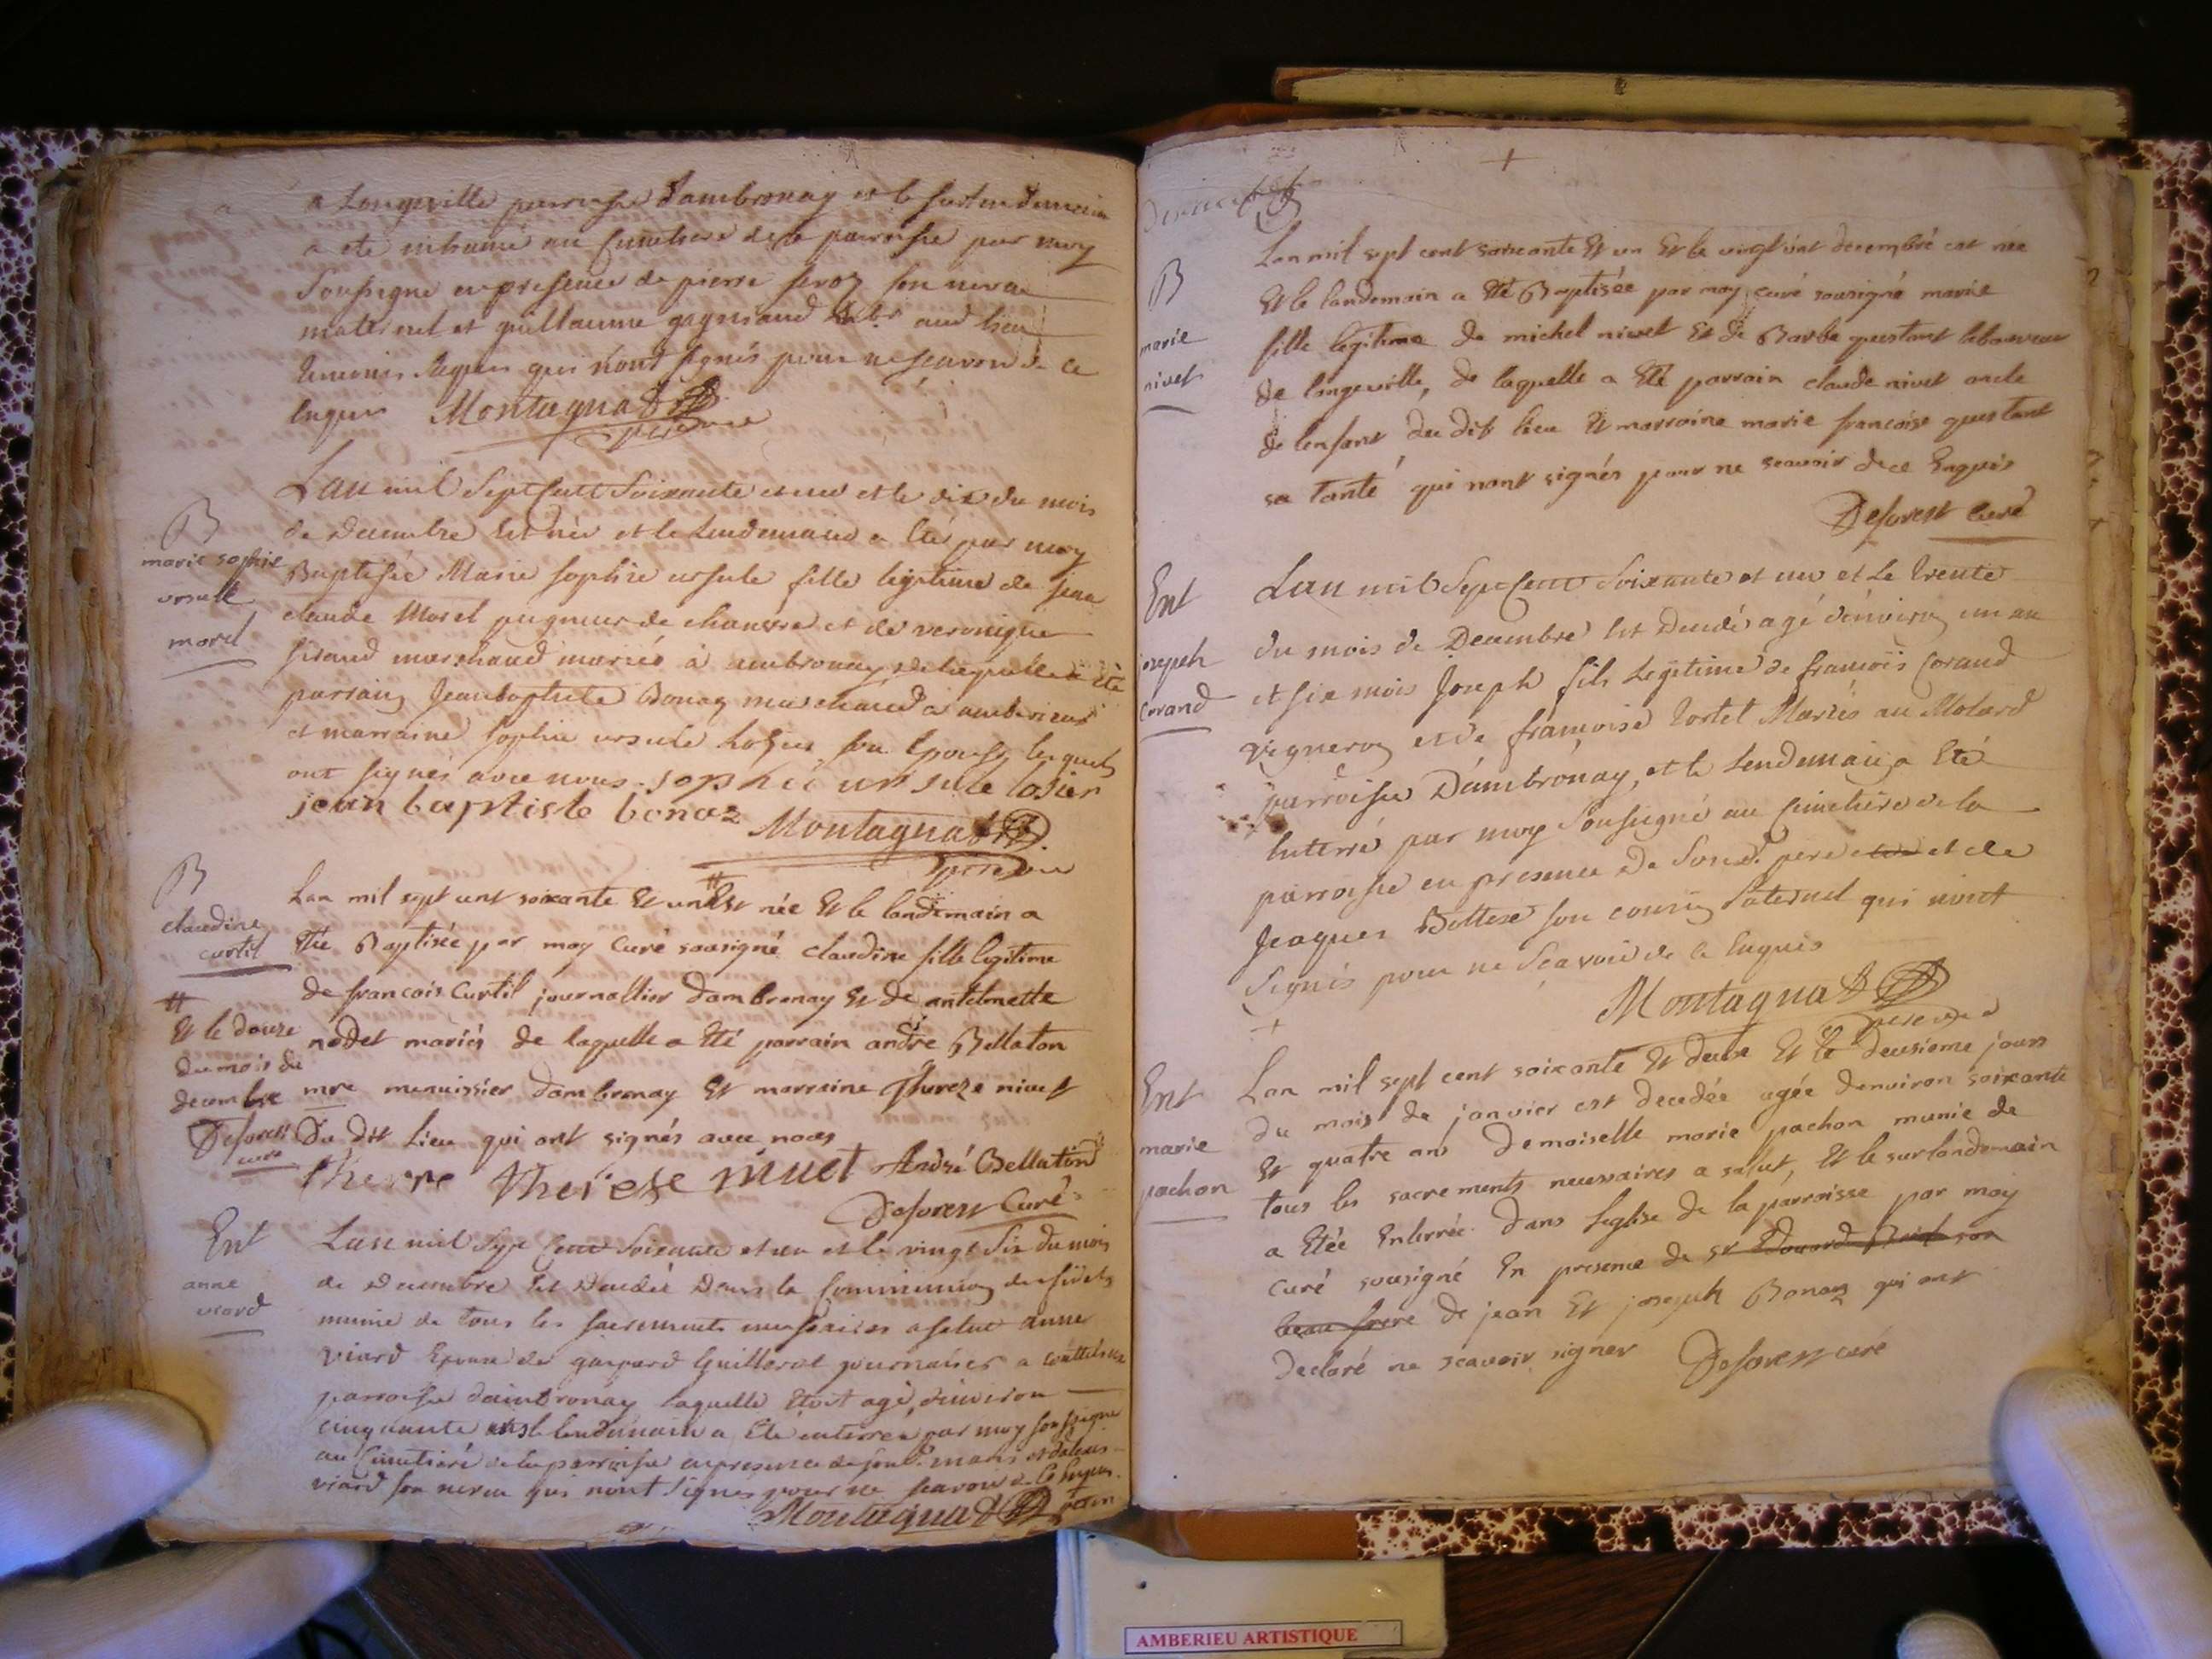 a Longeville parroisse dambronay et le surlendemain
a ete inhumé au cimetiere de la parroisse par moy
soussigné en presence de pierre son neveu
maternel et guillaume gagniaud dud lieu
temoins requis qui nont signés pour ne scavoir de ce
enquis Montagnat
B
marie sophie
ursulle
morel
Lan mil sept cent soixante et un et le dix du mois
de decembre est née et le lendemain a été par moy
Baptisée Marie sophie ursule fille legitime de jean
claude Morel peigneur de chanvre et de veronique
siraud marchand mariés à ambronay, de laquelle a été
parrain Jean baptiste Bonaz marchand a amberieux
et marraine sophie ursule losier son epouse lesquels
ont signés avec nous. sophie ursule losier
jean baptiste bonaz Montagnat
vicaire
B
claudine
curtil
Lan mil sept cent soixante Et un # Est née Et le landemain a
Eté Baptisée par moy curé sousigné claudine fille legitime
de francois Curtil journallier dambronay Et de antelmette
nodet mariés de laquelle a Eté parrain andre Bellaton
mre menuissier dambronay Et marraine thereze nivet
Du dit Lieu qui ont signés avec nous
#
Et le douze
du mois de
decembre
Deforest
curé
therre therese niuet André Bellaton
Deforest Curé
Ent
anne
viard
Lan mil sept cent soixante et un et le vingt six du mois
de Decembre est Decedée Dans la Communion des fidels
munie de tous les sacrements necessaires a salut anne
viard Epouse de gaspard Guillerot journalier a
parroisse dambronay laquelle etoit agé, d'environ
cinquante ans le lendemain a Eté enterrée par moy soussigné
au Cimetiere de la parroisse en presence de son d. mari et
viard son neveu qui nont signés pour ne scavoir de ce Enquis.
Montagnat
+
B
marie
nivet
Lan mil sept cent soixante Et un Et le vingt uit decembre est née
Et le landemain a Eté Baptisée par moy curé sousigné marie
fille legitime de michel nivet Et de Barbe questant laboureur
de longeville, de laquelle a Eté parrain claude nivet oncle
de lenfant du dit lieu Et marraine marie francoise questant
sa tante qui nont signés pour ne scavoir de ce Enquis
Deforest curé
Ent
joseph
Corand
Lan mil Sept Cent Soixante et un et Le trente
du mois de Decembre Est Decedé agé d'environ un an
et six mois Joseph fils Legitime de françois Corand
vigneron et de françoise tortet Mariés au Molard
parroisse D'ambronay, et le lendemain a Eté
Enterré par moy Soussigné au Cimetiere de la
parroisse en presence De Son d. pere et de
Jeaques Bottex son cousin paternel qui n'ont
Signés pour ne Sçavoir de ce Enquis
Montagnat
vicaire
+
Ent
marie
pochon
Lan mil sept cent soixante Et deux Et le deusieme jours
du mois de janvier est decedée agée denviron soixante
Et quatre ans Demoiselle marie pochon munie de
tous les sacrements necessaires a salut, Et le surlandemain
a Etée Enterrée dans leglise de la parroisse par moy
curé sousigné En presence de sr Edouard son
beau frere de jean Et joseph Bonaz qui ont
Declaré ne scavoir signer Deforest curé
AMBERIEU ARTISTIQUE